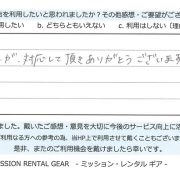 を利用したいと思われましたか？その他感想・ご要望がござ
利用したい　　b. どちらともいえない　　c. 利用はしない（理由
が、対応して頂きありがとうございます
ました。戴いたご感想・意見を大切に今後のサービス向上に活
利用なる方への参考の為、当HP上で利用させて戴くことがございま
是非、またのご利用機会を戴けましたら幸いです。
MISSION RENTAL GEAR　- ミッション・レンタル ギア -